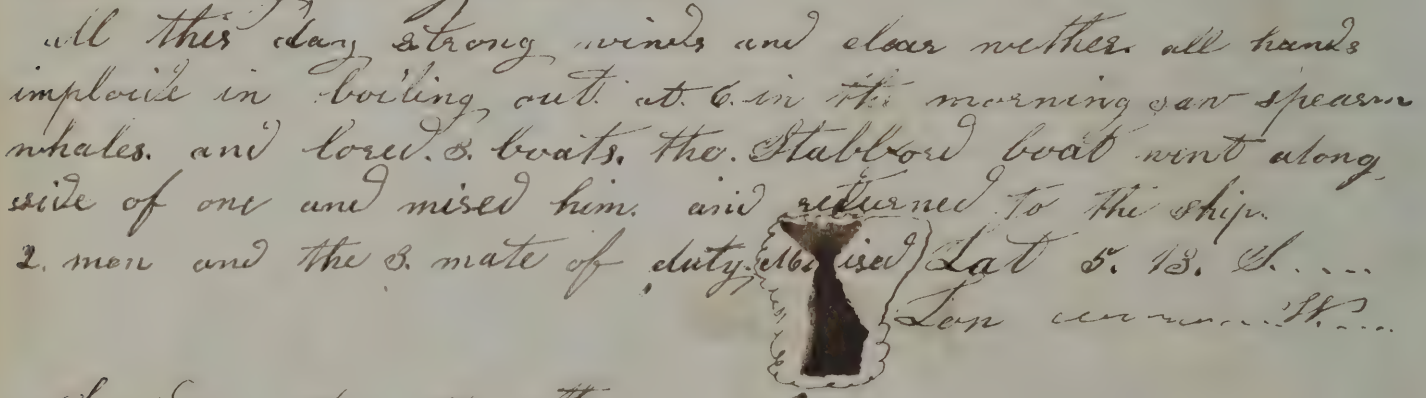 all this day strong winds and clear wether. all hands
imploide in boiling out. at. 6. in the morning saw spearm
whales. and lored. 3. boats. the. Stabbord boat went along
side of one and mised him. and returned to the ship.
2. men and the 3. mate of duty. Mised Lat 5. 13. S.....
Lon W....